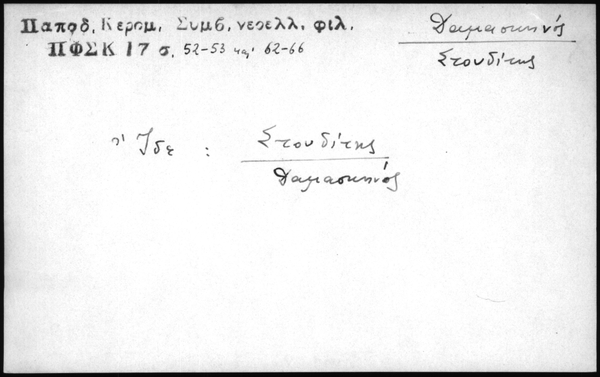 Παπαδ, Κεραμ, Συμβ, νεοελλ, φιλ,
ΠΦΣΚ 17 σ, 52-53 καὶ 62-66
Δαμασκηνός
Στουδίτης
Ἴδε : Στουδίτης
Δαμασκηνός